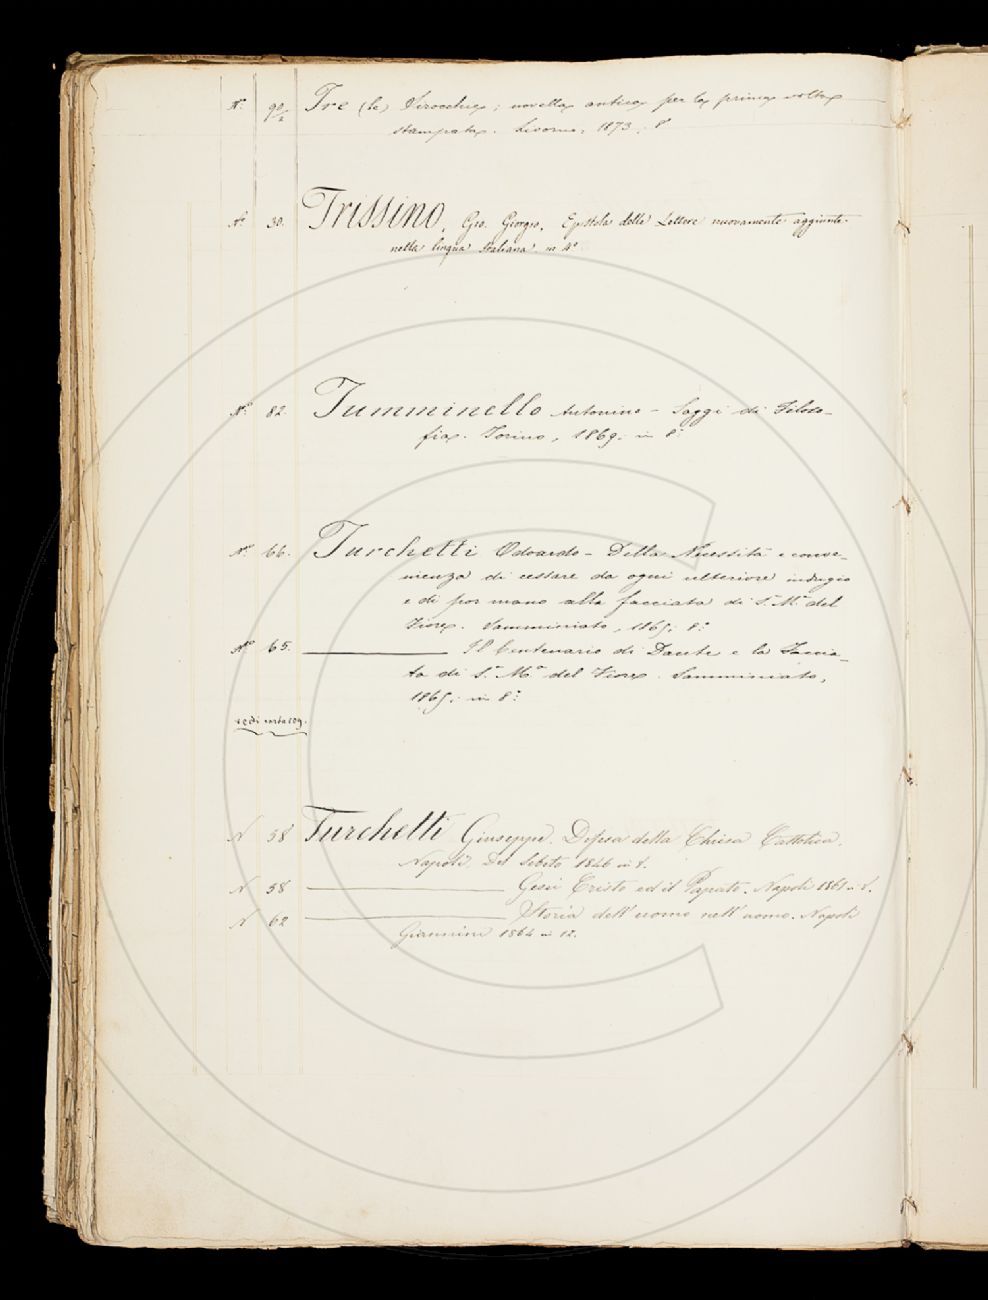 N.° 90/2 Tre (le) Sirocchie; novella antica per la prima volta
stampata. Livorno, 1873, 8°
N.° 30. Trissino, Gio. Giorgio, Epistola delle Lettere nuovamente aggiunte
nella lingua Italiana. in 4°
N.° 82. Tumminello Antonino – Saggi di Filoso-
fia. Torino, 1869; in 8°
N.° 66. Turchetti Odoardo – Della Necessità e conve-
nienza di cessare da ogni ulteriore indugio
e di por mano alla facciata di S.ª M.ª del
Fiore. Samminiato, 1865; 8°
N.° 65. Il Centenario di Dante e la Faccia-
ta di S.ª M.ª del Fiore. Samminiato,
1865; in 8°
vedi
N 58 Turchetti Giuseppe. Difesa della Chiesa Cattolica.
Napoli. Del Sebeto 1846 in 8.
N 58 Gesù Cristo ed il Papato. Napoli 1861 in 8.
N 62 Storia dell'uomo nell'uomo. Napoli
Giannini 1864 in 12.